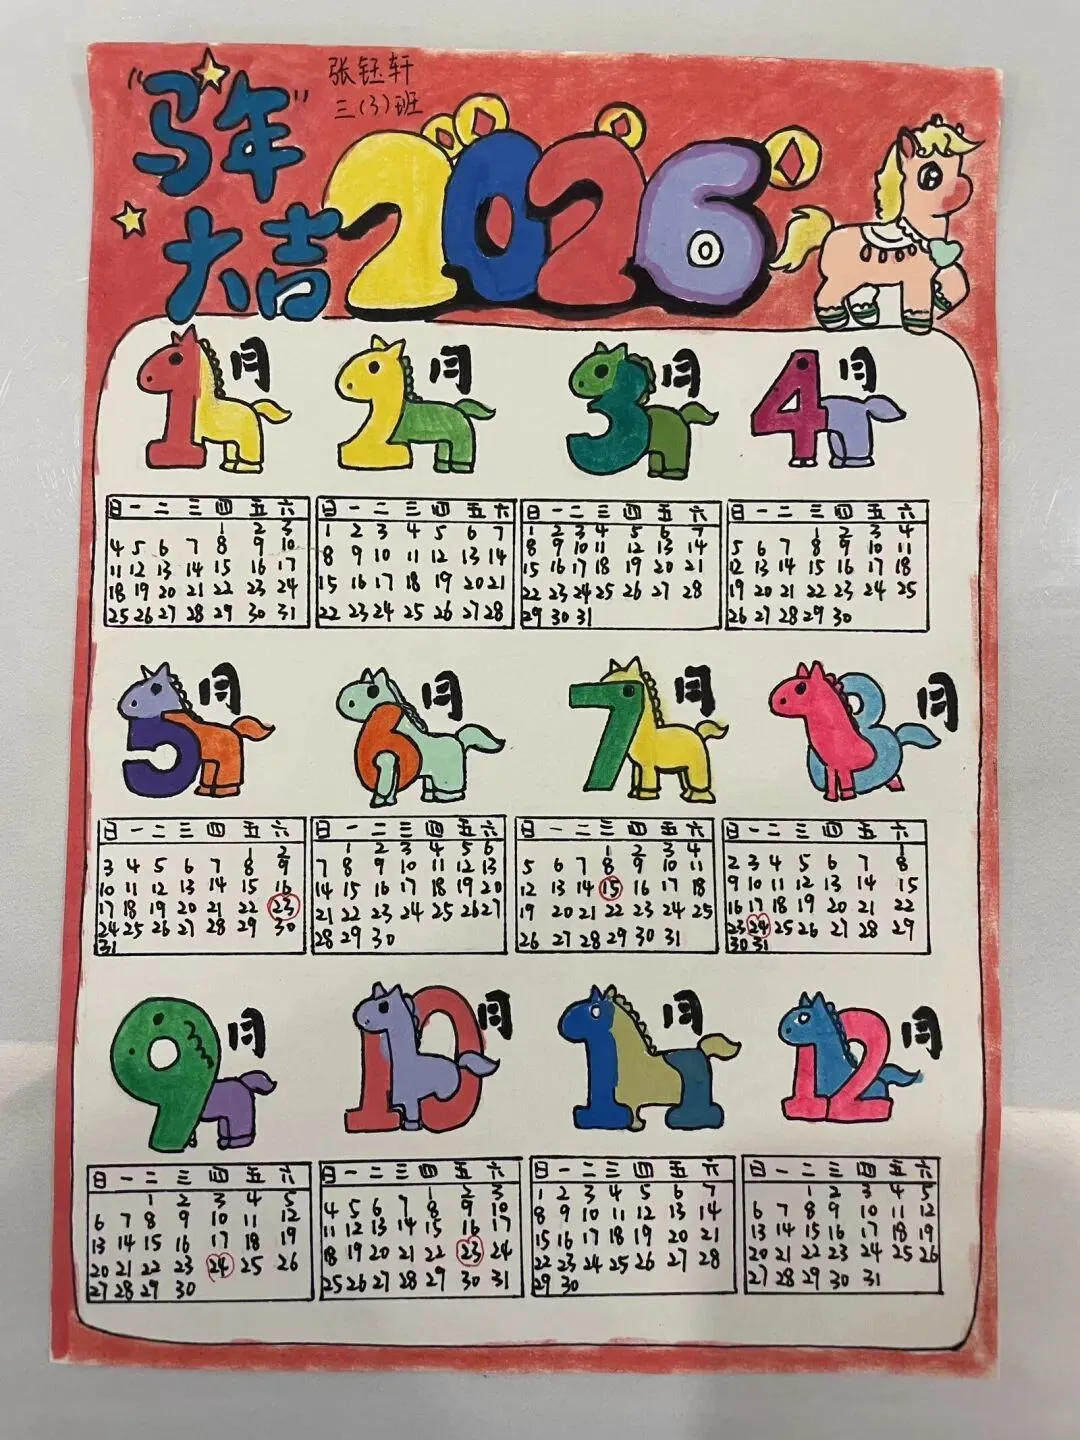 “马年”
大吉
张钰轩
三(3)班
2026
1月
2月
3月
4月
日 一 二 三 四 五 六
1 2 3
4 5 6 7 8 9 10
11 12 13 14 15 16 17
18 19 20 21 22 23 24
25 26 27 28 29 30 31
日 一 二 三 四 五 六
1 2 3 4 5 6 7
8 9 10 11 12 13 14
15 16 17 18 19 20 21
22 23 24 25 26 27 28
日 一 二 三 四 五 六
1 2 3 4 5 6 7
8 9 10 11 12 13 14
15 16 17 18 19 20 21
22 23 24 25 26 27 28
29 30 31
日 一 二 三 四 五 六
1 2 3 4
5 6 7 8 9 10 11
12 13 14 15 16 17 18
19 20 21 22 23 24 25
26 27 28 29 30
5月
6月
7月
8月
日 一 二 三 四 五 六
1 2
3 4 5 6 7 8 9
10 11 12 13 14 15 16
17 18 19 20 21 22 23
24 25 26 27 28 29 30
31
日 一 二 三 四 五 六
1 2 3 4 5 6
7 8 9 10 11 12 13
14 15 16 17 18 19 20
21 22 23 24 25 26 27
28 29 30
日 一 二 三 四 五 六
1 2 3 4
5 6 7 8 9 10 11
12 13 14 15 16 17 18
19 20 21 22 23 24 25
26 27 28 29 30 31
日 一 二 三 四 五 六
1
2 3 4 5 6 7 8
9 10 11 12 13 14 15
16 17 18 19 20 21 22
23 24 25 26 27 28 29
30 31
9月
10月
11月
12月
日 一 二 三 四 五 六
1 2 3 4 5
6 7 8 9 10 11 12
13 14 15 16 17 18 19
20 21 22 23 24 25 26
27 28 29 30
日 一 二 三 四 五 六
1 2 3
4 5 6 7 8 9 10
11 12 13 14 15 16 17
18 19 20 21 22 23 24
25 26 27 28 29 30 31
日 一 二 三 四 五 六
1 2 3 4 5 6 7
8 9 10 11 12 13 14
15 16 17 18 19 20 21
22 23 24 25 26 27 28
29 30
日 一 二 三 四 五 六
1 2 3 4 5
6 7 8 9 10 11 12
13 14 15 16 17 18 19
20 21 22 23 24 25 26
27 28 29 30 31